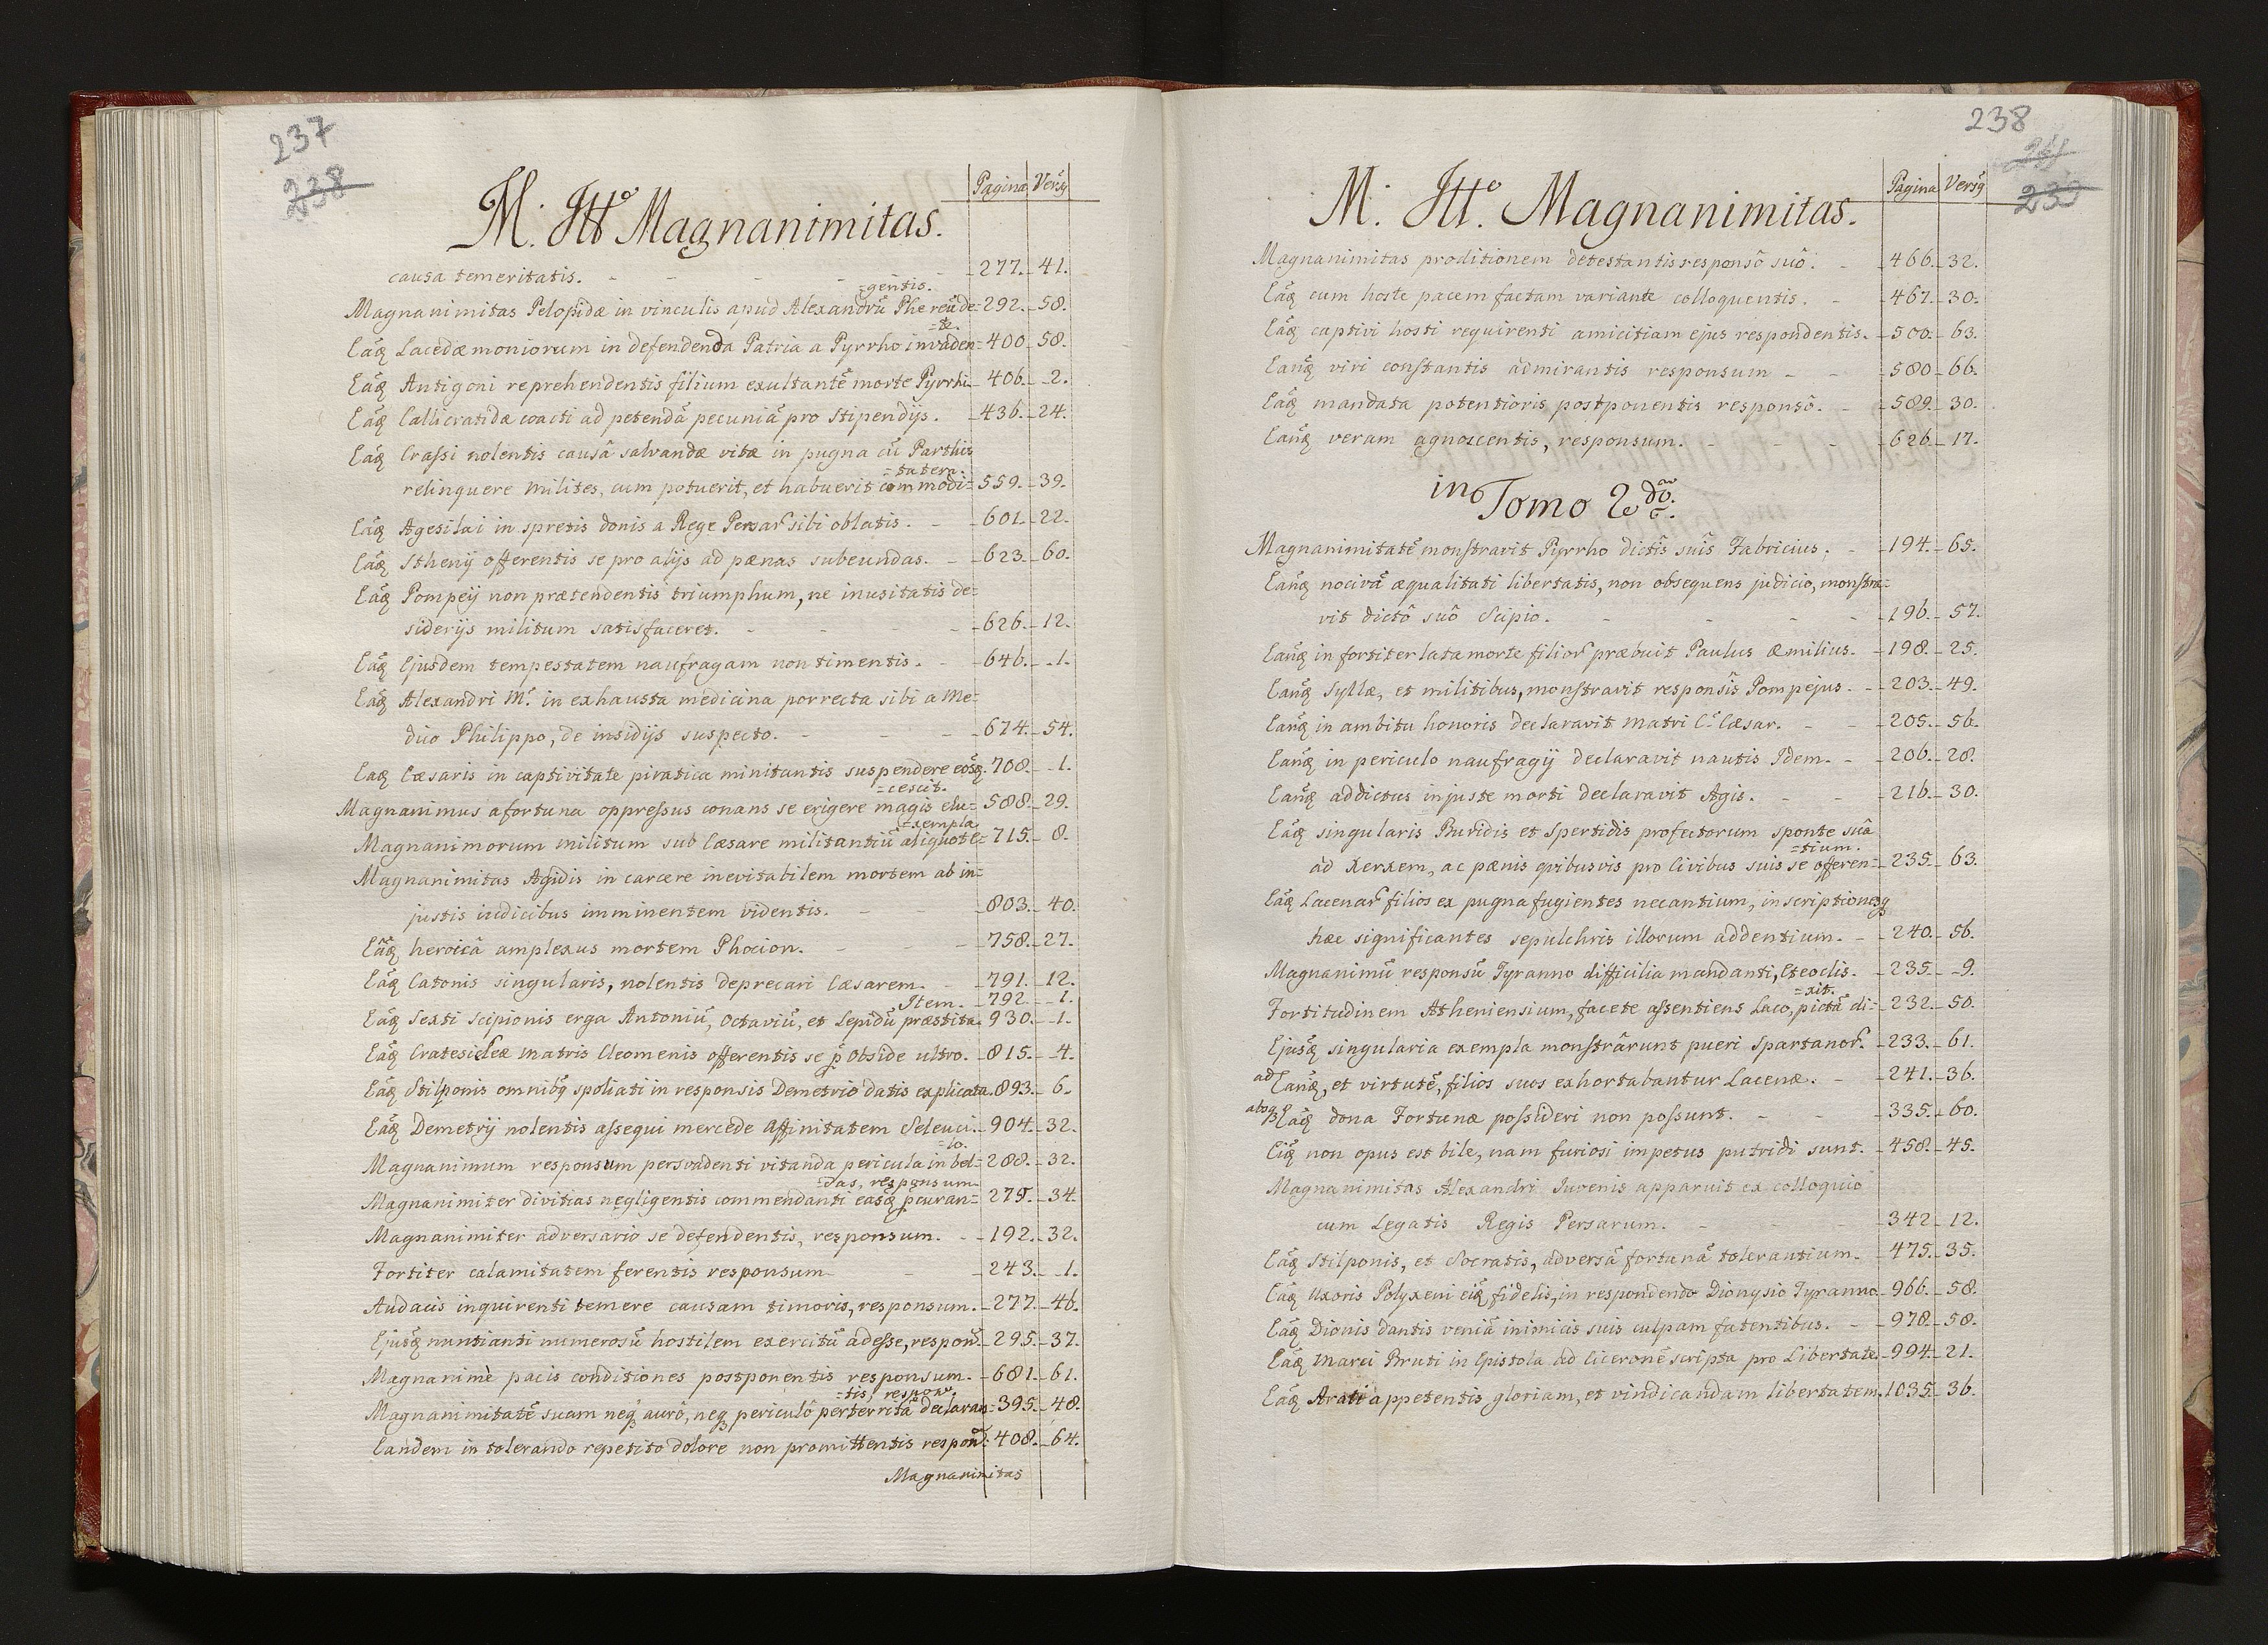 237
238
Pagina Versq
M. Itt° Magnanimitas.
causa temeritatis. - 277. 41.
=gentis.
Magnanimitas Pelopidæ in vinculis apud Alexandrũ Phereũ de- 292. 58.
=te.
Eáq Lacedæmoniorum in defendenda Patria a Pyrrho invaden= 400. 58.
Eáq Antigoni reprehendentis filium exultantẽ morte Pyrrhi. 406. 2.
Eáq Callicratidæ coacti ad petendã pecuniã pro stipendijs. 436. 24.
Eáq Crassi nolentis causâ salvandæ vitæ in pugna cũ Parthis
=tatem.
relinquere milites, cum potuerit, et habuerit commodi= 559. 39.
Eáq Agesilai in spretis donis a Rege Persar sibi oblatis. - 601. 22.
Eáq Sthenij offerentis se pro alijs ad pænas subeundas. - 623. 60.
Eáq Pompeij non prætendentis triumphum, ne inusitatis de=
siderijs militum satisfaceret. - 626. 12.
Eáq Ejusdem tempestatem naufragam non timentis. - 646. 1.
Eáq Alexandri M. in exhausta medicina porrecta sibi a Me=
dico Philippo, de insidijs suspecto. - 674. 54.
Eaq Cæsaris in captivitate piratica minitantis suspendere eosq. 708. 1.
=cescit.
Magnanimus a fortuna oppressus conans se erigere magis elu= 588. 29.
=xempla
Magnanimorum militum sub Cæsare militantiũ aliquot e= 715. 8.
Magnanimitas Agidis in carcere inevitabilem mortem ab in=
justis iudicibus imminentem videntis. - 803. 40.
Eãq heroicâ amplexus mortem Phocion. - 758. 27.
Eáq Catonis singularis, nolentis deprecari Cæsarem. - 791. 12.
Item. 792. 1.
Eáq Sexti Scipionis erga Antoniũ, Octaviũ, et Lepidũ præstita. 930. 1.
Eáq Cratesicleæ matris Cleomenis offerentis se p̃ Obside ultro. 815. 4.
Eáq Stilponis omnibq spoliati in responsis Demetrio datis explicata. 893. 6.
Eáq Demetrij nolentis assequi mercede Affinitatem Seleuci. 904. 32.
=lo.
Magnanimum responsum persvadenti vitanda pericula in bel= 288. 32.
das, responsum
Magnanimiter divitias negligentis commendanti easq p̃curan= 275. 34.
Magnanimiter adversario se defendentis, responsum. - 192. 32.
Fortiter calamitatem ferentis responsum - 243. 1.
Audacis inquirenti temere causam timoris, responsum. 277. 46.
Ejusq nuntianti numerosũ hostilem exercitũ adesse, respoñ. 295. 37.
Magnanimè pacis conditiones postponentis responsum. 681. 61.
=tis, respon.
Magnanimitatẽ suam neq aurô, neq periculô perterritã declaran= 395. 48.
Eandem in tolerando repetito dolore non promittentis respoñ: 408. 64.
Magnanimitas
238
239
Pagina Versq
M. Itt°. Magnanimitas.
Magnanimitas proditionem detestantis responsô suô. - 466. 32.
Eáq cum hoste pacem factam variante colloquentis. - 467. 30.
Eáq captivi hosti requirenti amicitiam ejus respondentis. 500. 63.
Eanq viri constantis admirantis responsum - 580. 66.
Eáq mandata potentioris postponentis responsô. - 589. 30.
Eanq veram agnoscentis, responsum. - 626. 17.
in Tomo 2do.
Magnanimitatẽ monstravit Pyrrho dictis suis Fabricius. - 194. 65.
Eanq nocivã æqualitati libertatis, non obsequens judicio, monstra=
vit dictô suô Scipio. - 196. 57.
Eanq in fortiter lata morte filior præbuit Paulus Æmilius. 198. 25.
Eanq Syllæ, et militibus, monstravit responsis Pompejus. - 203. 49.
Eanq in ambitu honoris declaravit matri C. Cæsar. - 205. 56.
Eanq in periculo naufragij declaravit nautis Idem. - 206. 28.
Eanq addictus injuste morti declaravit Agis. - 216. 30.
Eáq singularis Buridis et Spertidis profectorum sponte suâ
=tium.
ad Xerxem, ac pænis qvibusvis pro Civibus suis se offeren= 235. 63.
Eáq Lacenar filios ex pugna fugientes necantium, inscriptionesq
hæc significantes sepulchris illorum addentium. - 240. 56.
Magnanimũ responsũ Tyranno difficilia mandanti, Eteoclis. 235. 9.
=xit.
Fortitudinem Atheniensium, facete assentiens Laco, pictã di= 232. 50.
Ejusq singularia exempla monstrârunt pueri Spartanor. 233. 61.
ad Eanq, et virtutẽ, filios suos exhortabantur Lacenæ. - 241. 36.
absq Eáq dona Fortunæ possideri non possunt. - 335. 60.
Eiq non opus est bile, nam furiosi impetus putridi sunt. 458. 45.
Magnanimitas Alexandri Iuvenis apparuit ex colloquio
cum Legatis Regis Persarum. - 342. 12.
Eáq Stilponis, et Socratis, adversã fortunã tolerantium. 475. 35.
Eáq Uxoris Polyxeni eiq fidelis, in respondendo Dionysio Tyranno. 966. 58.
Eáq Dionis dantis veniã inimicis suis culpam fatentibus. - 978. 58.
Eáq Marci Bruti in Epistola ad Ciceronẽ scripta pro Libertate. 994. 21.
Eáq Arati appetentis gloriam, et vindicandam libertatem. 1035. 36.